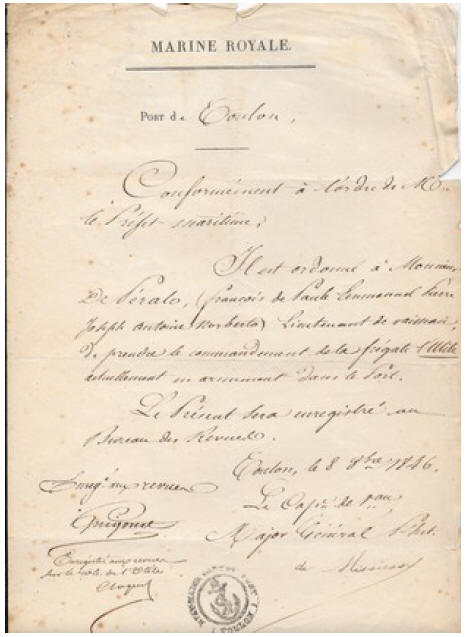 MARINE ROYALE.
PORT de Toulon,
Conformément à l'ordre de Mr
le Préfet maritime,
Il est ordonné à Monsieur
De Péralo, (françois de Paule Emmanuel Pierre
Joseph Antoine Norberto) Lieutenant de vaisseau,
de prendre le commandement de la frégate l'Utile
actuellement en armement dans le Port.
Le Présent sera enregistré au
Bureau des Revues.
Toulon, le 8 8bre 1846.
Enregé aux revues
Le Capne de Vau
Major Général
de
Enregistré aux revues
sur le rôle de l'Utile